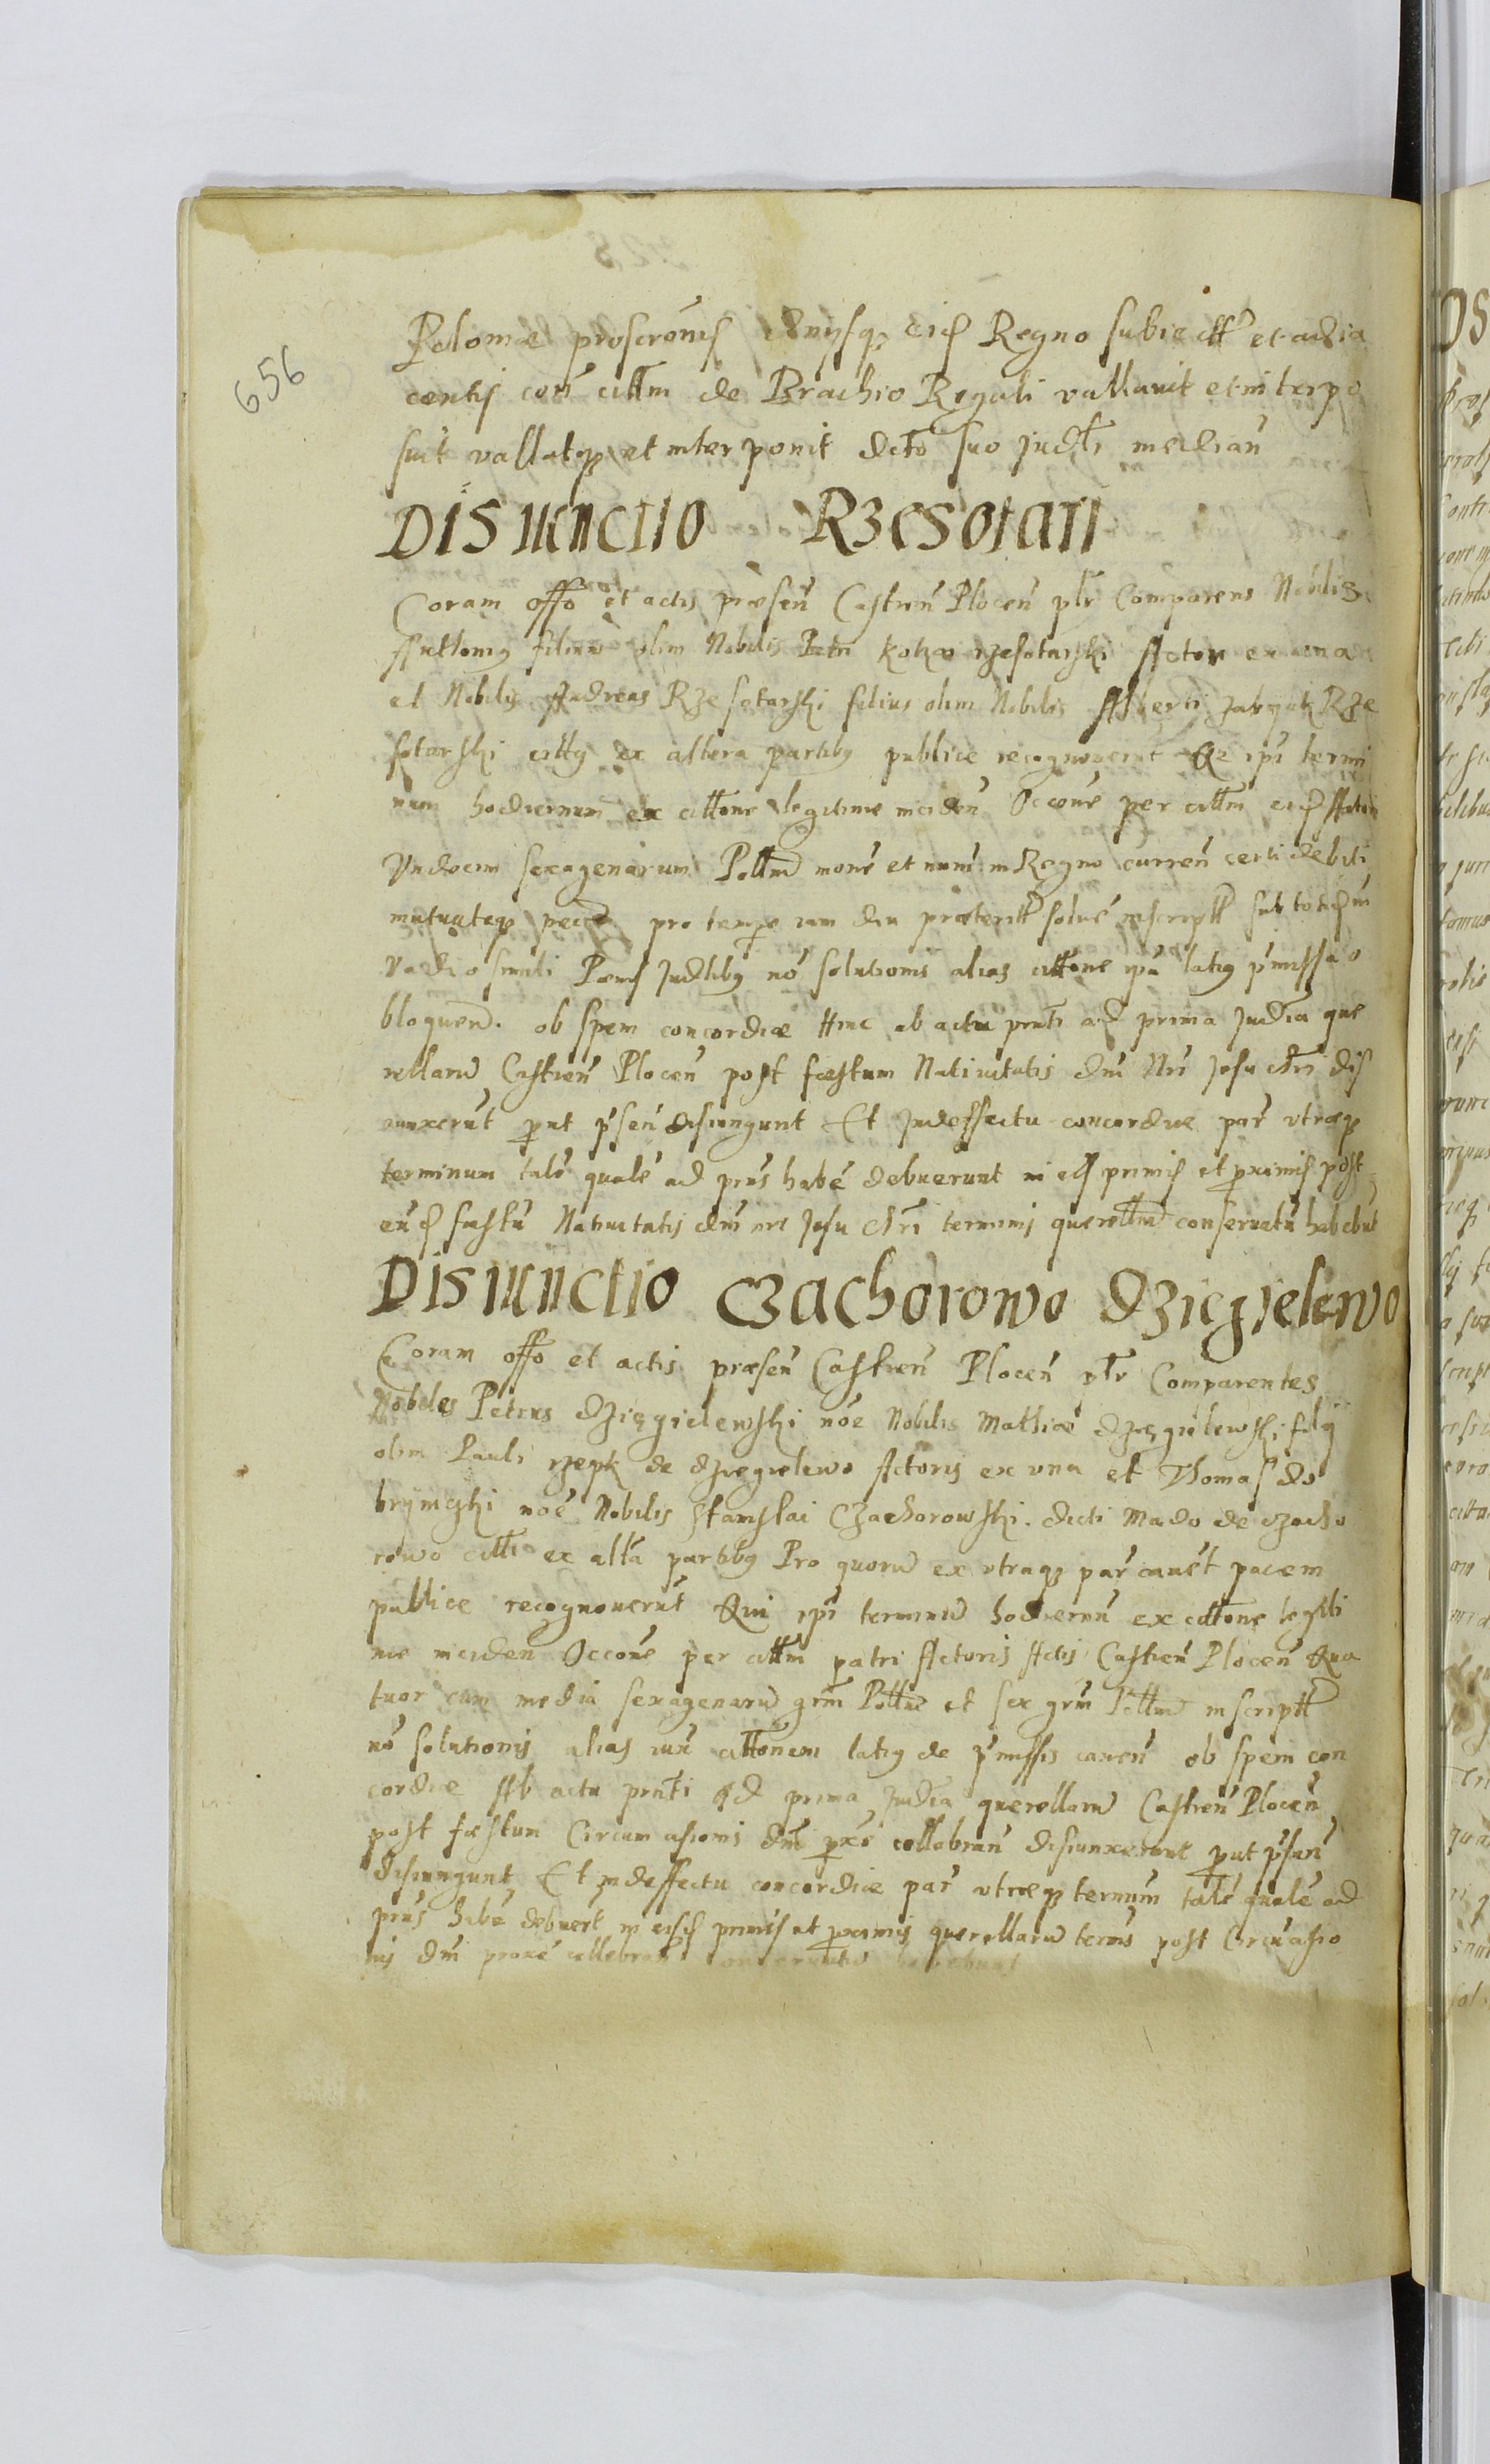 656
Poloniæ proscrōnis dnijsq₃ eid Regno subiectt et adia
centis con cittm de Brachio Regali vallauit et interpo
suit vallatq₃ et interponit dcto suo judtī median̄
Disiunctio Rzesotari
Coram offo et actis præsen̄ Castren̄ Plocen̄ pltr Comparens Nobilis
filius olim Nobilis Petri Kotka rzesotarski Actor ex una
et Nobilis Andreas Rzesotarski filius olim Nobilis Alberti Rze
sotarski citty ex altera partiby publice recognouerūt Qe ipi termi
num hodiernum ex cittone legitime inciden̄ Occone per cittm eid Actorem
Vndecim sexagenarum Polltm mone et num in Regno curren̄ certi debiti
mutuateq₃ pecce pro tempe iam diu præteritt solue inscriptt sub totidem
Vadio simili Pænis Judtiby nō solutionis alias cittone ipa latiy pmissa o
bloquen. ob spem concordiæ Hinc ab actu pnti ad prima Judcia que
rellaru Castren̄ Plocen̄ post fæstum Natiuitatis dni Nri Jesu chri dis
iunxerūt put psen̄ disiungunt Et Indeffectu concordiæ par vtraq₃
terminum talē qualē ad prius habē debuerunt in eisd primis et pximis post
eūd fæstū Natiuitatis dni nri Jesu chri terminis querelltm conseruatū habebūt
Disiunctio Czachorowo Dziegielewo
Coram offo et actis præsen̄ Castren̄ Plocen̄ pltr Comparentes
Nobiles Petrus Dzięgielewski nōe Nobilis Mathiæ dzięgielewski filij
olim Pauli rzepk de dzięgielewo Actoris ex vna et Thomas do
brijnięski nōe Nobilis Stanislai Czachorowski. dicti Mado de czacho
rowo citti ex alta partiby Pro quoru ex vtraq₃ par cauēt pacem
publice recognouerūt Qui ipi terminu hodiernū ex cittone legitti
me inciden Occone per cittm patri Actoris Actis Castren̄ Plocen̄ Qua
tuor cum media sexagenaru grm Polltm et sex grm Polltm inscriptt
nō solutionis alias iux cittonem latiy de pmissis canen̄ ob spem con
cordiæ Ab actu pnti Ad prima Judcia querellaru Castren̄ Plocen̄
post fæstum Circumcisionis dni pxe cellebran̄ disiunxerunt put psen̄
disiungunt Et Indeffectu concordiæ par vtraq₃ terminm talē qualē ad
prius habē debuert in eisd primis et pximis querellaru termis post Circūcisio
nis dni proxe cellebran̄ conseruatū habebunt